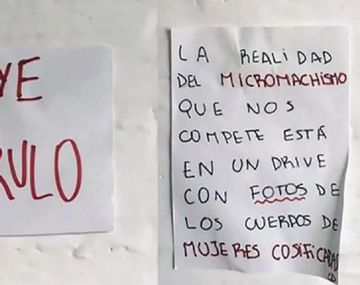 YE
RULO
LA REALIDAD
DEL MICROMACHISMO
QUE NOS
COMPETE ESTÁ
EN UN DRIVE
CON FOTOS DE
LOS CUERPOS DE
MUJERES COSIFICADAS